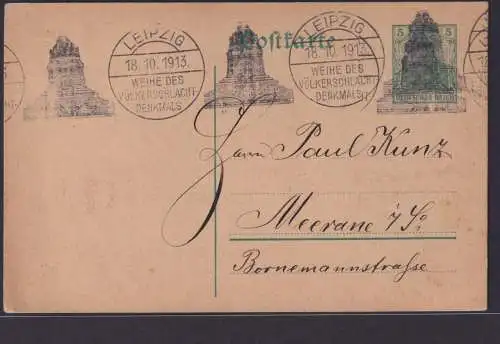 Postkarte
LEIPZIG
18.10.1913.
WEIHE DES
VÖLKERSCHLACHT-
DENKMALS
LEIPZIG
18.10.1913.
WEIHE DES
VÖLKERSCHLACHT-
DENKMALS
5 5
DEUTSCHES REICH
Herrn Paul Kunz
Meerane i/S.
Bornemannstrasse